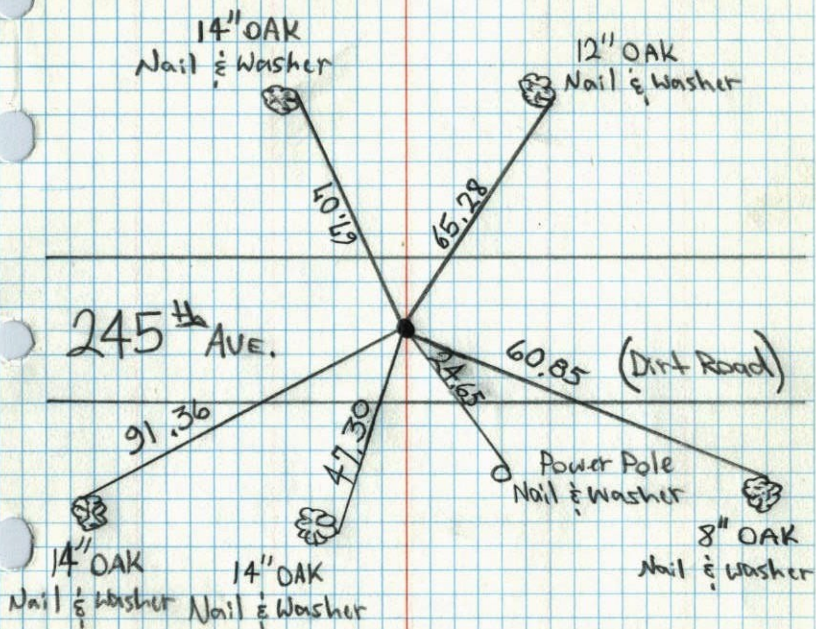 14" OAK
Nail & Washer
12" OAK
Nail & Washer
65.28
245th AVE.
60.85
(Dirt Road)
24.65
91.36
47.30
Power Pole
Nail & Washer
8" OAK
Nail & Washer
14" OAK
Nail & Washer
14" OAK
Nail & Washer